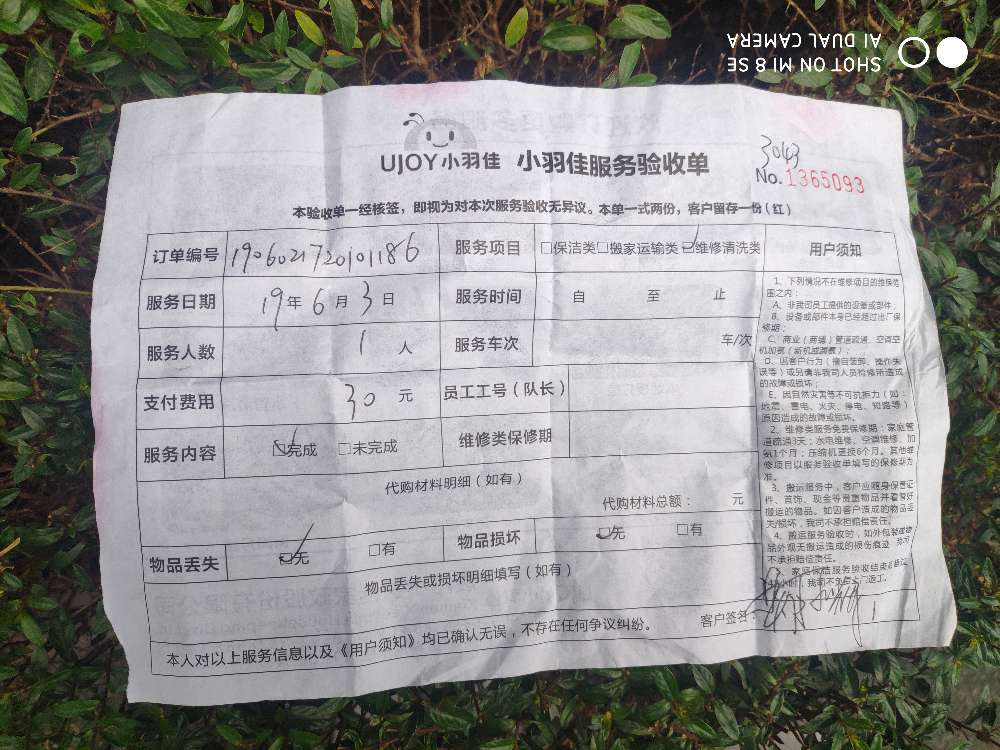 SHOT ON MI 8 SE
AI DUAL CAMERA
UJOY小羽佳 小羽佳服务验收单
3043
No.1365093
本验收单一经核签，即视为对本次服务验收无异议。本单一式两份，客户留存一份（红）
订单编号 190602172010 1186
服务项目 保洁类 搬家运输类 维修清洗类
服务日期 19年6月3日
服务时间 自 至 止
服务人数 1人
服务车次 车/次
支付费用 30元
员工工号（队长）
服务内容 完成 未完成
维修类保修期
代购材料明细（如有）
代购材料总额： 元
物品丢失 无 有
物品损坏 无 有
物品丢失或损坏明细填写（如有）
本人对以上服务信息以及《用户须知》均已确认无误，不存在任何争议纠纷。
客户签名：
用户须知
1、下列情况不在维修项目的维保范
围之内：
A、非我司员工提供的设备或部件；
B、设备或部件本身已经超过出厂保
修期；
C、商业（商铺）管道疏通、空调空
机加氨（新机或满氨）；
D、因客户行为（擅自装卸、操作失
误等）或另请非我司人员检修所造成
的故障或损坏；
E、因自然灾害等不可抗拒力（如：
地震、雷电、火灾、停电、短路等）
原因造成的故障或损坏。
2、维修类服务免费保修期：家庭管
道疏通3天；水电维修、空调维修、加
氨1个月；压缩机更换6个月。其他维
修项目以服务验收单填写的保修期为
准。
3、搬运服务中，客户应随身保管证
件、首饰、现金等贵重物品并看管好
搬运的物品。如因客户造成的物品丢
失/损坏，我司不承担赔偿责任。
4、搬运服务验收时，如外包装或物
品外观无搬运造成的损伤痕迹，我司
不承担赔偿责任。
家庭保洁服务验收结束
小时，我司不负责上门返工。